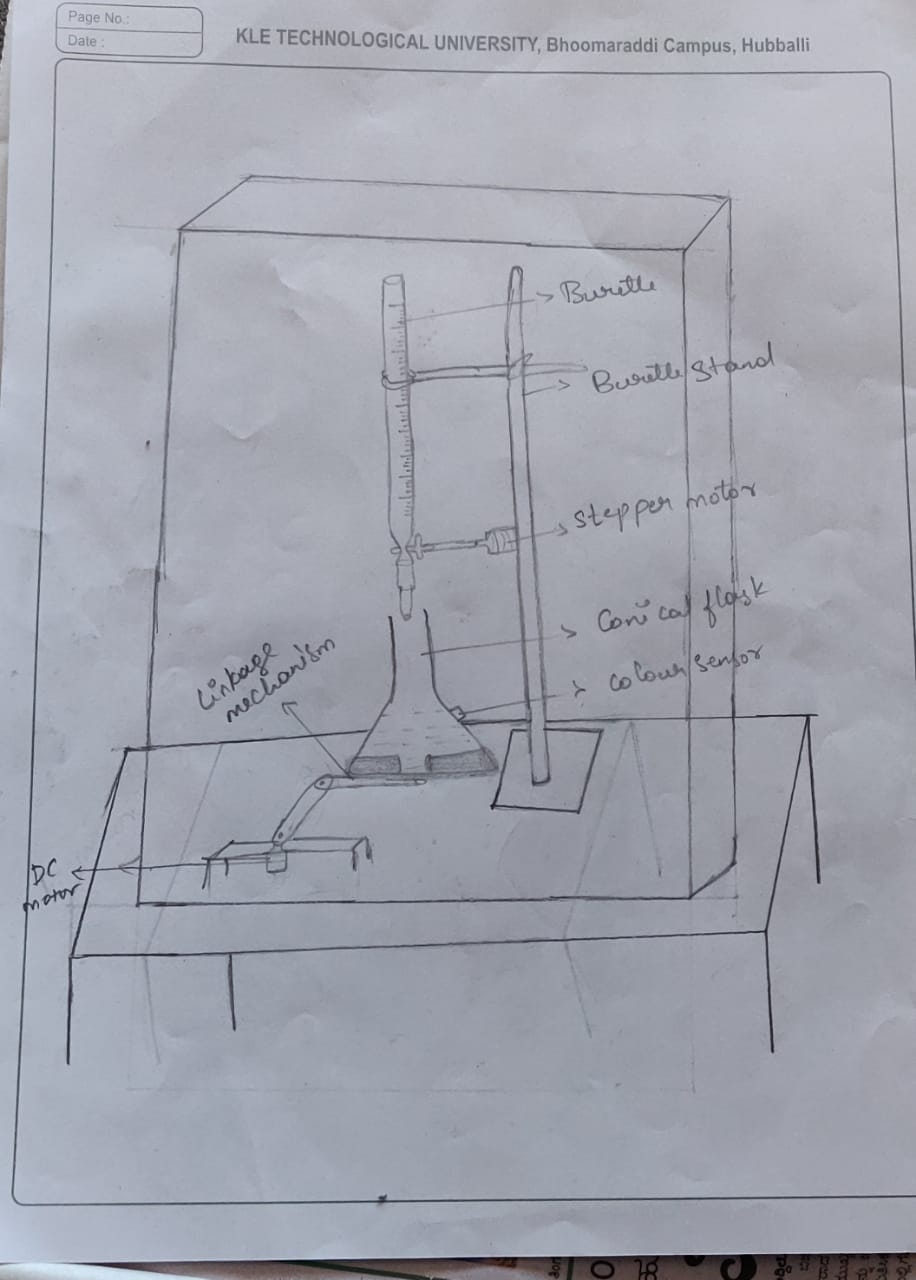 Page No.:
Date :
KLE TECHNOLOGICAL UNIVERSITY, Bhoomaraddi Campus, Hubballi
Burette
Burette Stand
Stepper motor
Conical flask
colour sensor
Linkage
mechanism
DC
motor